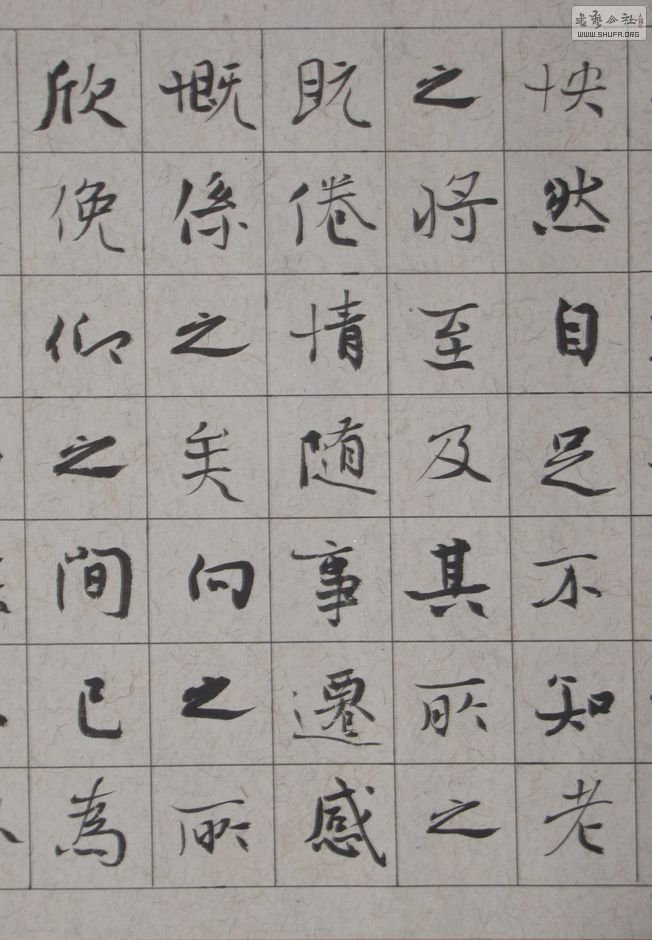 怏然自足不知老
之将至及其所之
既倦情随事遷感
慨係之矣向之所
欣俛仰之間已為
WWW.SHUFA.ORG